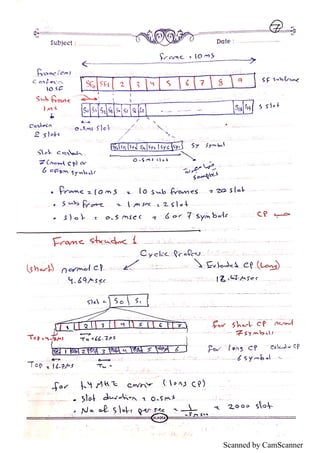 7
Subject:
Date:
Frame = 10ms
Frame (10ms)
contain
10 SF
SF0 SF1 2 3 4 5 6 7 8 9
SF subframe
Sub frame
1ms
S0 S1 S2 S3 S4 S5 S6
S18 S19
S slot
contain
2 slots
0.5ms slot
Sy symbol
slot contain
7 (normal cp) or
6 OFDM symbols
0.5ms slot
samples
• Frame = 10ms = 10 sub frames = 20 slot
• sub frame = 1 msec = 2 slot
• slot = 0.5 msec = 6 or 7 symbols
CP
Frame structure 1
Cyclic Prefix
(short) normal CP
Extended CP (Long)
4.69 Msec
slot =
S0 S1
1 2 3 4 5 6 7
for short CP
7 symbols
for long CP
6 symbol
TCP = 16.7MS
Tu =
for 1.4 MHZ carrier (long CP)
• slot duration = 0.5ms
• No of slots per sec = 1/.5msec = 2000 slot
Scanned by CamScanner